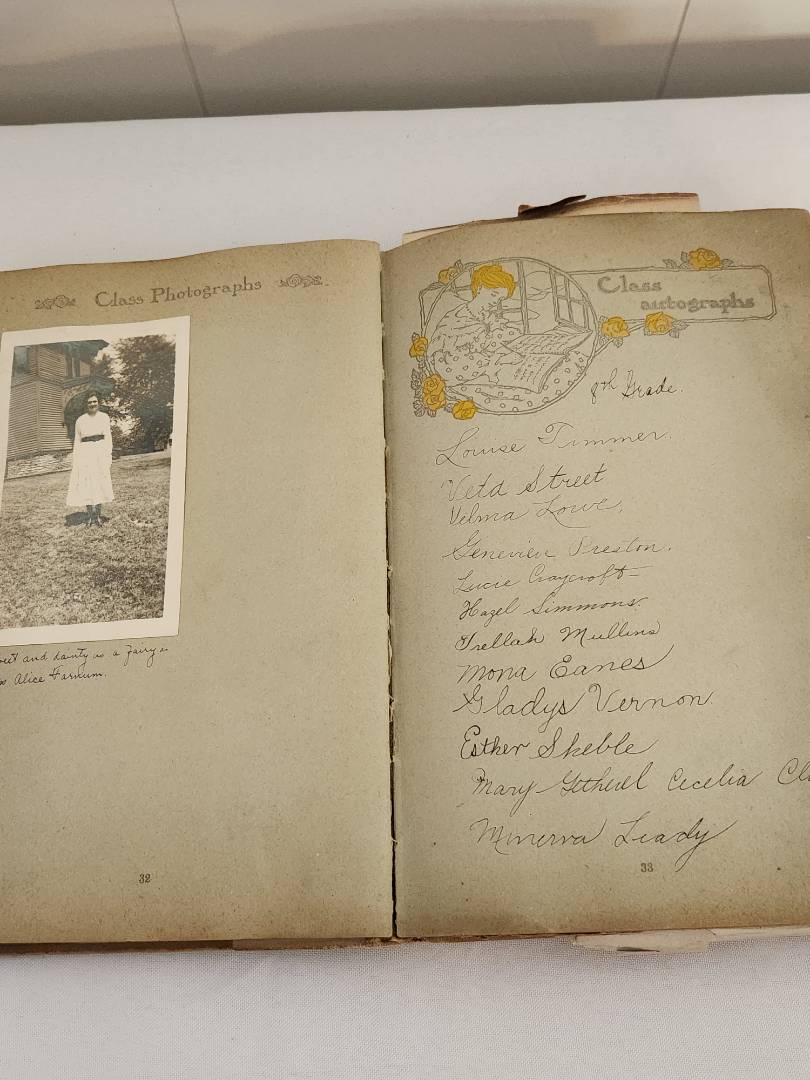 Class Photographs
and dainty as a fairy is
Alice Farnum.
32
Class
autographs
8th Grade.
Louise Timmer.
Veta Street
Velma Lowe.
Genevieve Preston.
Lucie Craycroft
Hazel Simmons.
Trellah Mullins
Mona Eanes
Gladys Vernon
Esther Skeble
Mary Cecelia
Minerva Leady
33